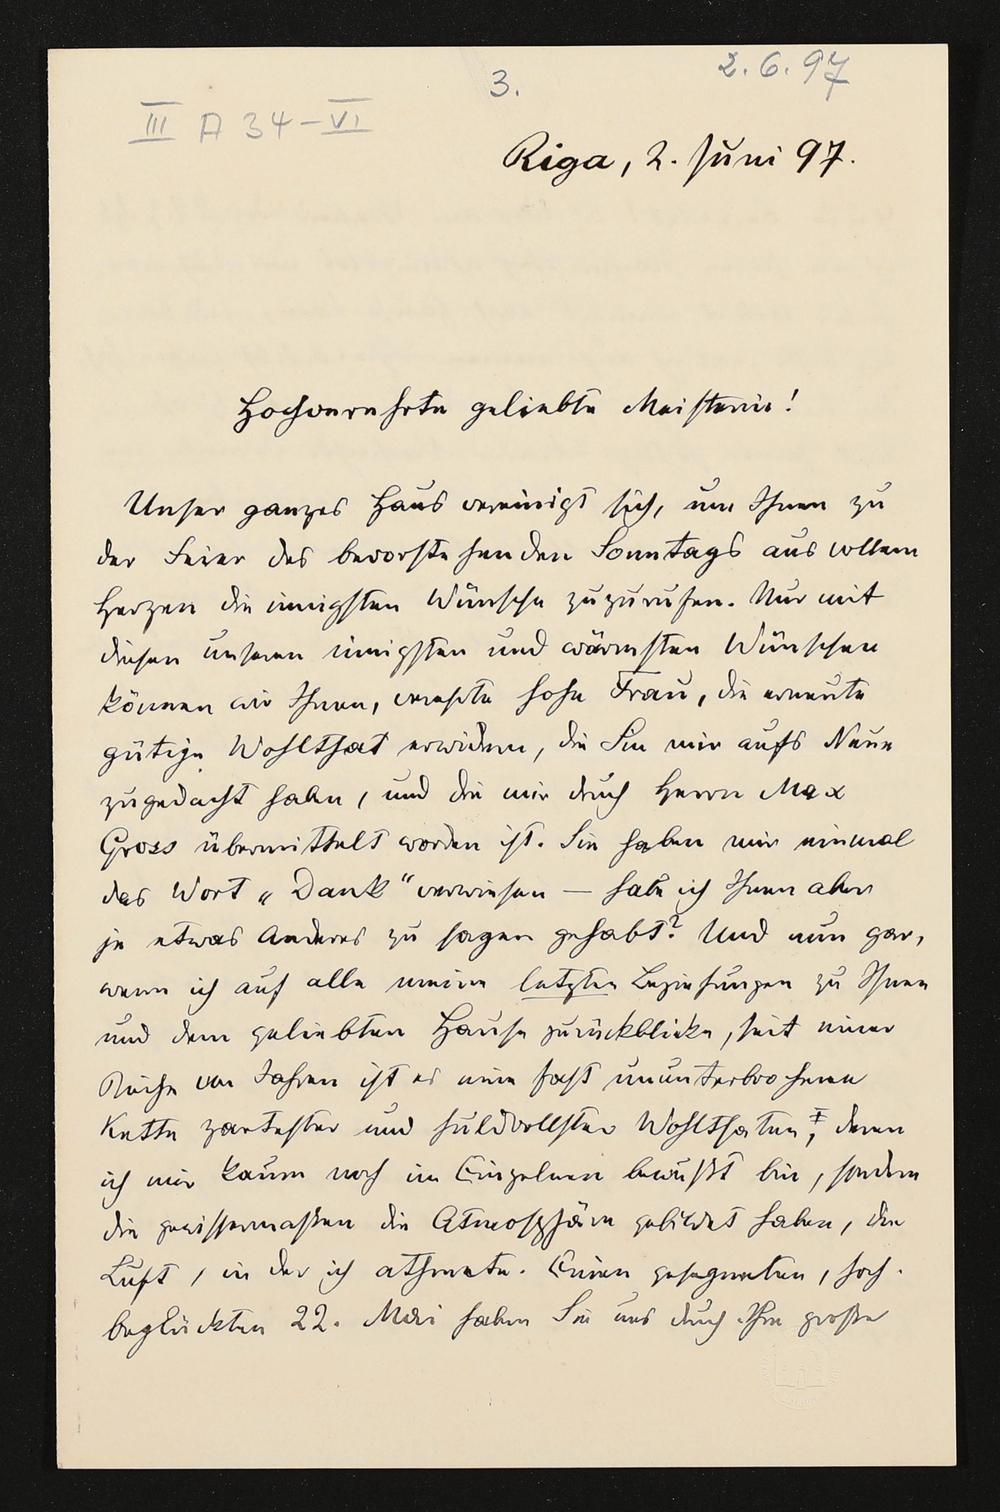 3.
2.6.97
III A 34-VI
Riga, 2. Juni 97.
Hochverehrte geliebte Meisterin!
Unser ganzes Haus vereinigt sich, um Ihnen zu
der Feier des bevorstehenden Sonntags aus vollem
Herzen die innigsten Wünsche zuzurufen. Nur mit
diesen unseren innigsten und wärmsten Wünschen
können wir Ihnen, verehrte hohe Frau, die erneute
gütige Wohlthat erwidern, die Sie mir aufs Neue
zugedacht haben, und die mir durch Herrn Max
Gross übermittelt worden ist. Sie haben mir einmal
das Wort „Dank“ verwiesen — habe ich Ihnen aber
je etwas Anderes zu sagen gehabt? Und nun gar,
wenn ich auf alle meine letzten Beziehungen zu Ihnen
und dem geliebten Hause zurückblicke, seit einer
Reihe von Jahren ist es eine fast ununterbrochene
Kette zartester und huldvollster Wohlthaten, deren
ich mir kaum noch im Einzelnen bewußt bin, sondern
die gewissermaßen die Atmosphäre gebildet haben, die
Luft, in der ich athmete. Einen gesegneten, hoch-
beglückten 22. Mai haben Sie uns durch Ihre große